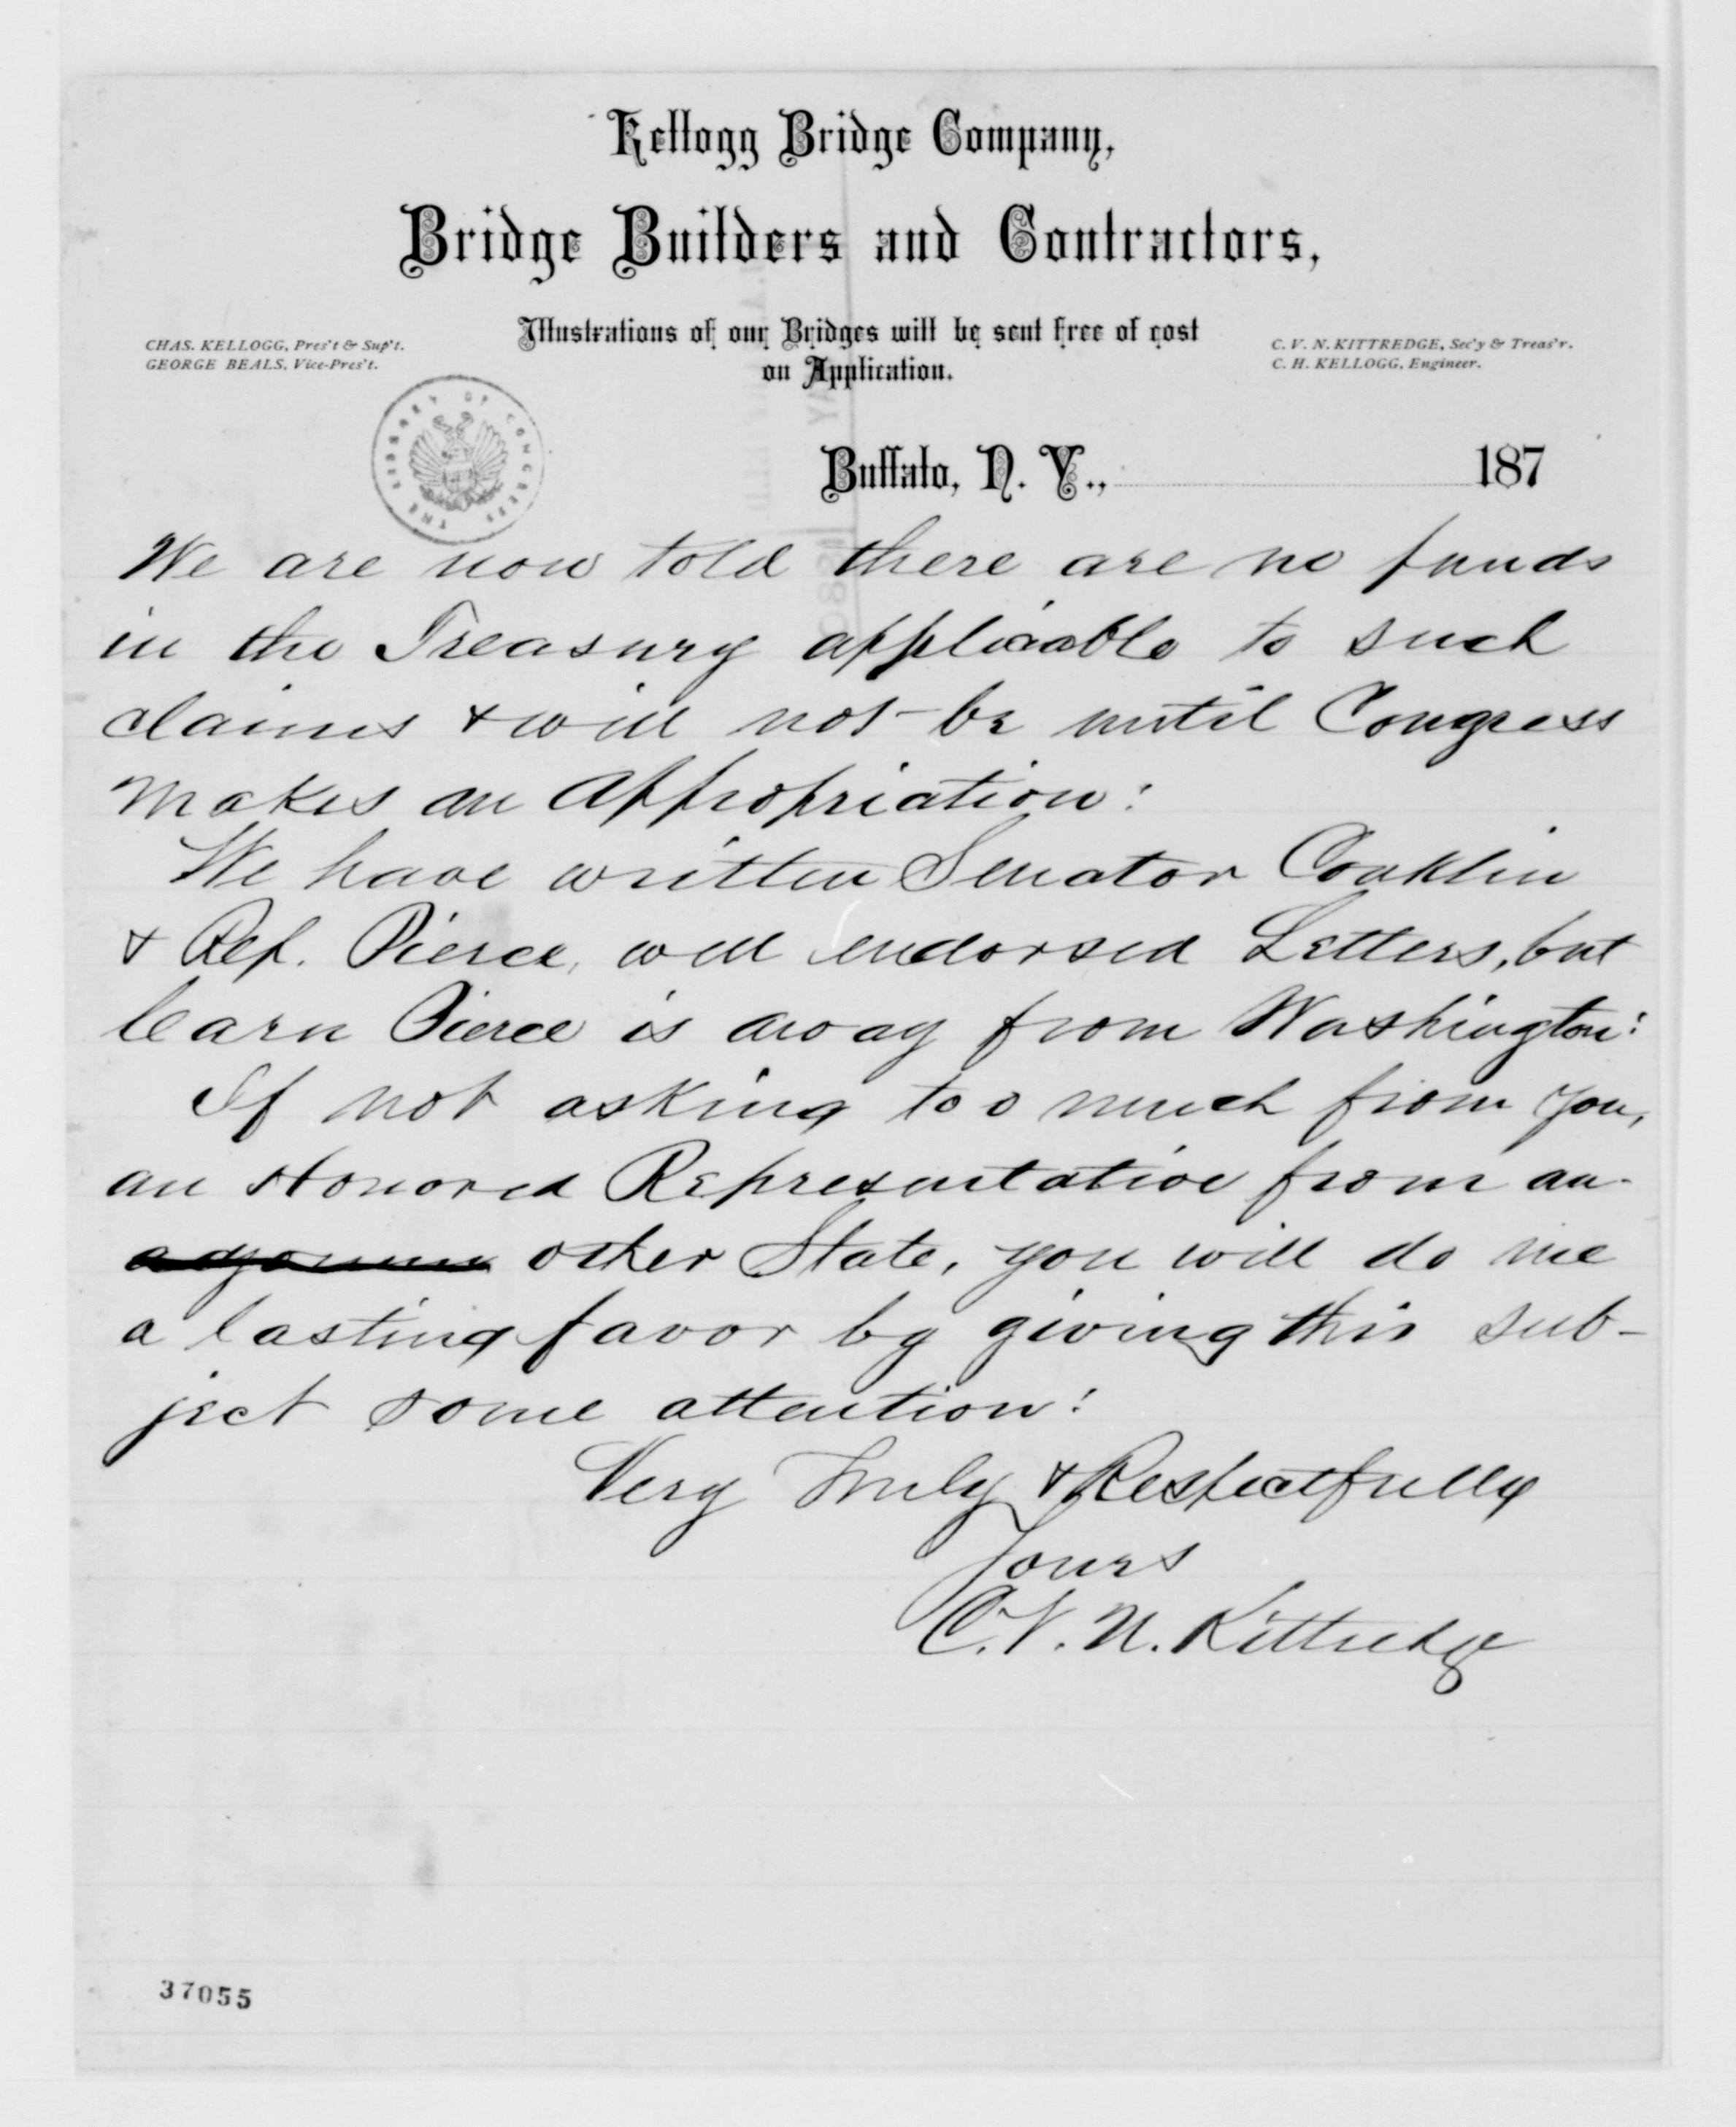 Kellogg Bridge Company,
Bridge Builders and Contractors,
Illustrations of our Bridges will be sent free of cost
on Application.
CHAS. KELLOGG, Pres't & Sup't.
GEORGE BEALS, Vice-Pres't.
C. V. N. KITTREDGE, Sec'y & Treas'r.
C. H. KELLOGG, Engineer.
THE LIBRARY OF CONGRESS
Buffalo, N. Y., 187
We are now told there are no funds
in the Treasury applicable to such
claims & will not be until Congress
makes an appropriation:
We have written Senator Conklin
& Rep. Pierce, well endorsed Letters, but
learn Pierce is away from Washington:
If not asking too much from you,
an Honored Representative from an-
other State, you will do me
a lasting favor by giving this sub-
ject some attention:
Very Truly & Respectfully
Yours
C. V. N. Kittredge
37055